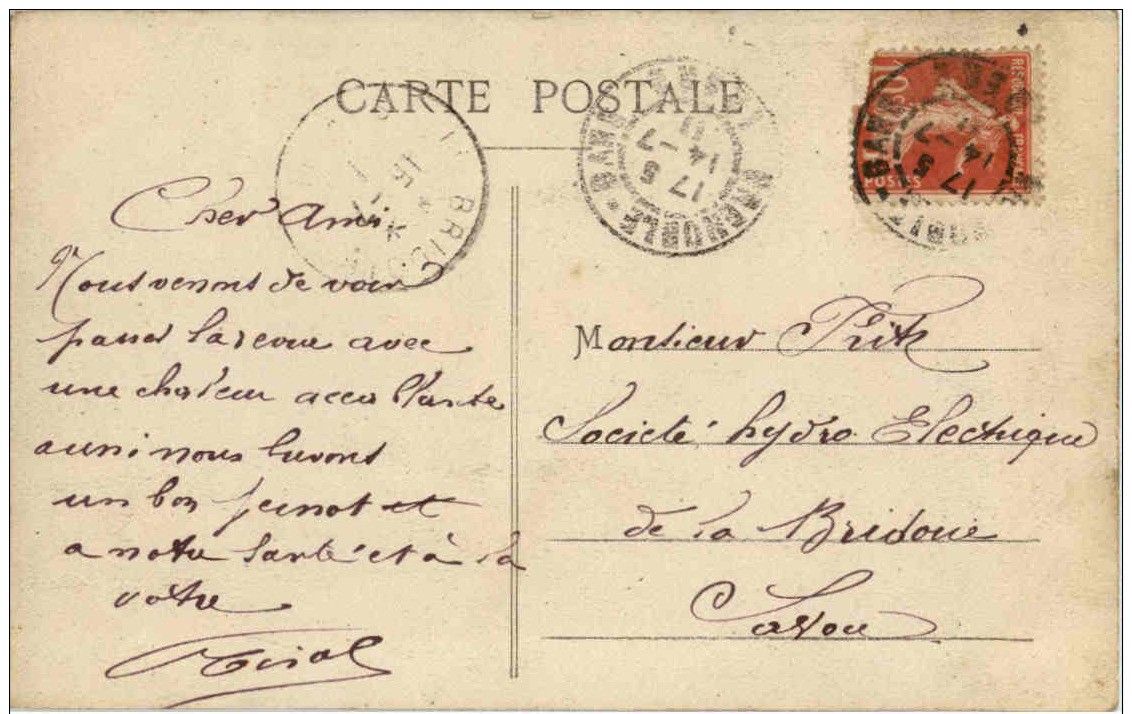 CARTE POSTALE
Cher Ami
Nous venons de voir
passer la revue avec
une chaleur accablante
aussi nous buvons
un bon pernot et
a notre santé et à la
votre
Monsieur
Société hydro Electrique
de la Bridoire
Savoie
GARE
GRENOBLE
17 5
14 -7
POSTES
10